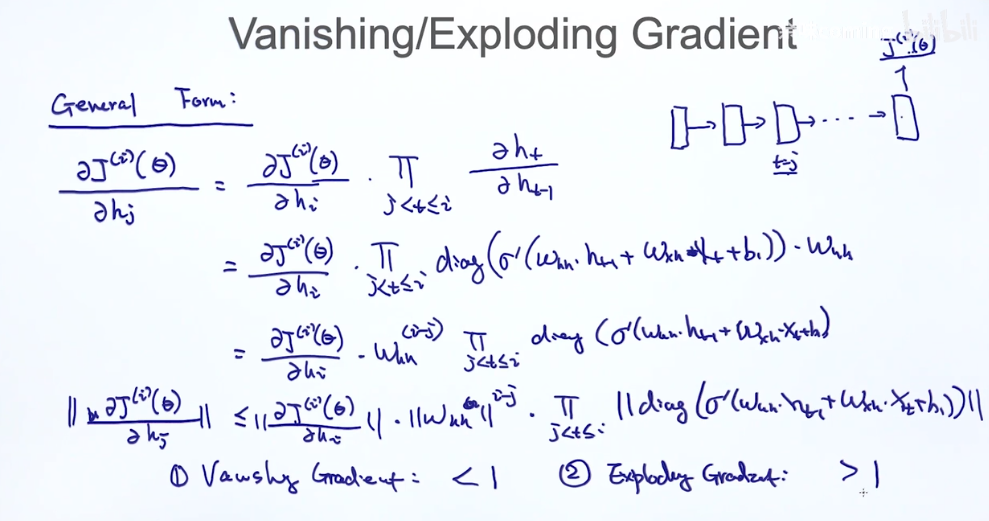 Vanishing/Exploding Gradient
bilibili
J^(i)(θ)
General Form:
t=j
∂J^(i)(θ)/∂h_j = ∂J^(i)(θ)/∂h_i · ∏_{j<t≤i} ∂h_t/∂h_{t-1}
= ∂J^(i)(θ)/∂h_i · ∏_{j<t≤i} diag(σ'(W_hh · h_{t-1} + W_xh · X_t + b_1)) · W_hh
= ∂J^(i)(θ)/∂h_i · W_hh^(i-j) ∏_{j<t≤i} diag(σ'(W_hh · h_{t-1} + W_xh · X_t + b_1)
||∂J^(i)(θ)/∂h_j|| ≤ ||∂J^(i)(θ)/∂h_i|| · ||W_hh||^{i-j} · ∏_{j<t≤i} ||diag(σ'(W_hh · h_{t-1} + W_xh · X_t + b_1))||
① Vanishing Gradient: < 1 ② Exploding Gradient: > 1